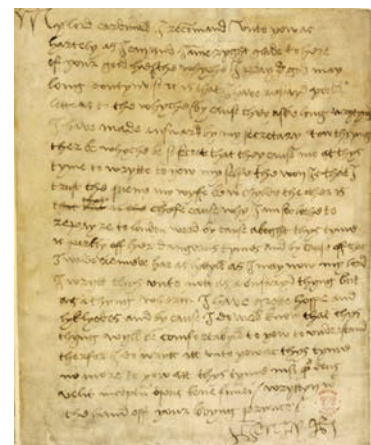 My lord cardinall I recomand unto yow as
hartely as I can and I am ryght glade to here
of your good helthe whyche I pray god may
long contynu so it is that I have receyvyd your
letters to the whyche by cause they aske long
I have made answar by my secretary two thyngs
ther be whyche be so secret that they cause me at thys
tyme to wrytte to yow my selfe the won is that I
trust the quene my wyfe be with chylde the other is
chefe cause why I am so lothe to
repayre to london ward by cause abowght thys tyme
is partly of her dangerus tymes and by cause off that
I wolde remove her as lyttyll as I may now my lord
I wrytt thys unto not as a ensuryd thyng but
as a thyng wherin I have grete hoppe and
lyklyodes and by cause I do well know that thys
thyng wyll be comfortabyll to yow to understand
therfor I do wrytt itt unto yow at thys tyme
no more to yow att thys tyme nisi quod deus
velit inceptum opus bene finiri wryttyn with
the hand off your lovyng prince
Henry R